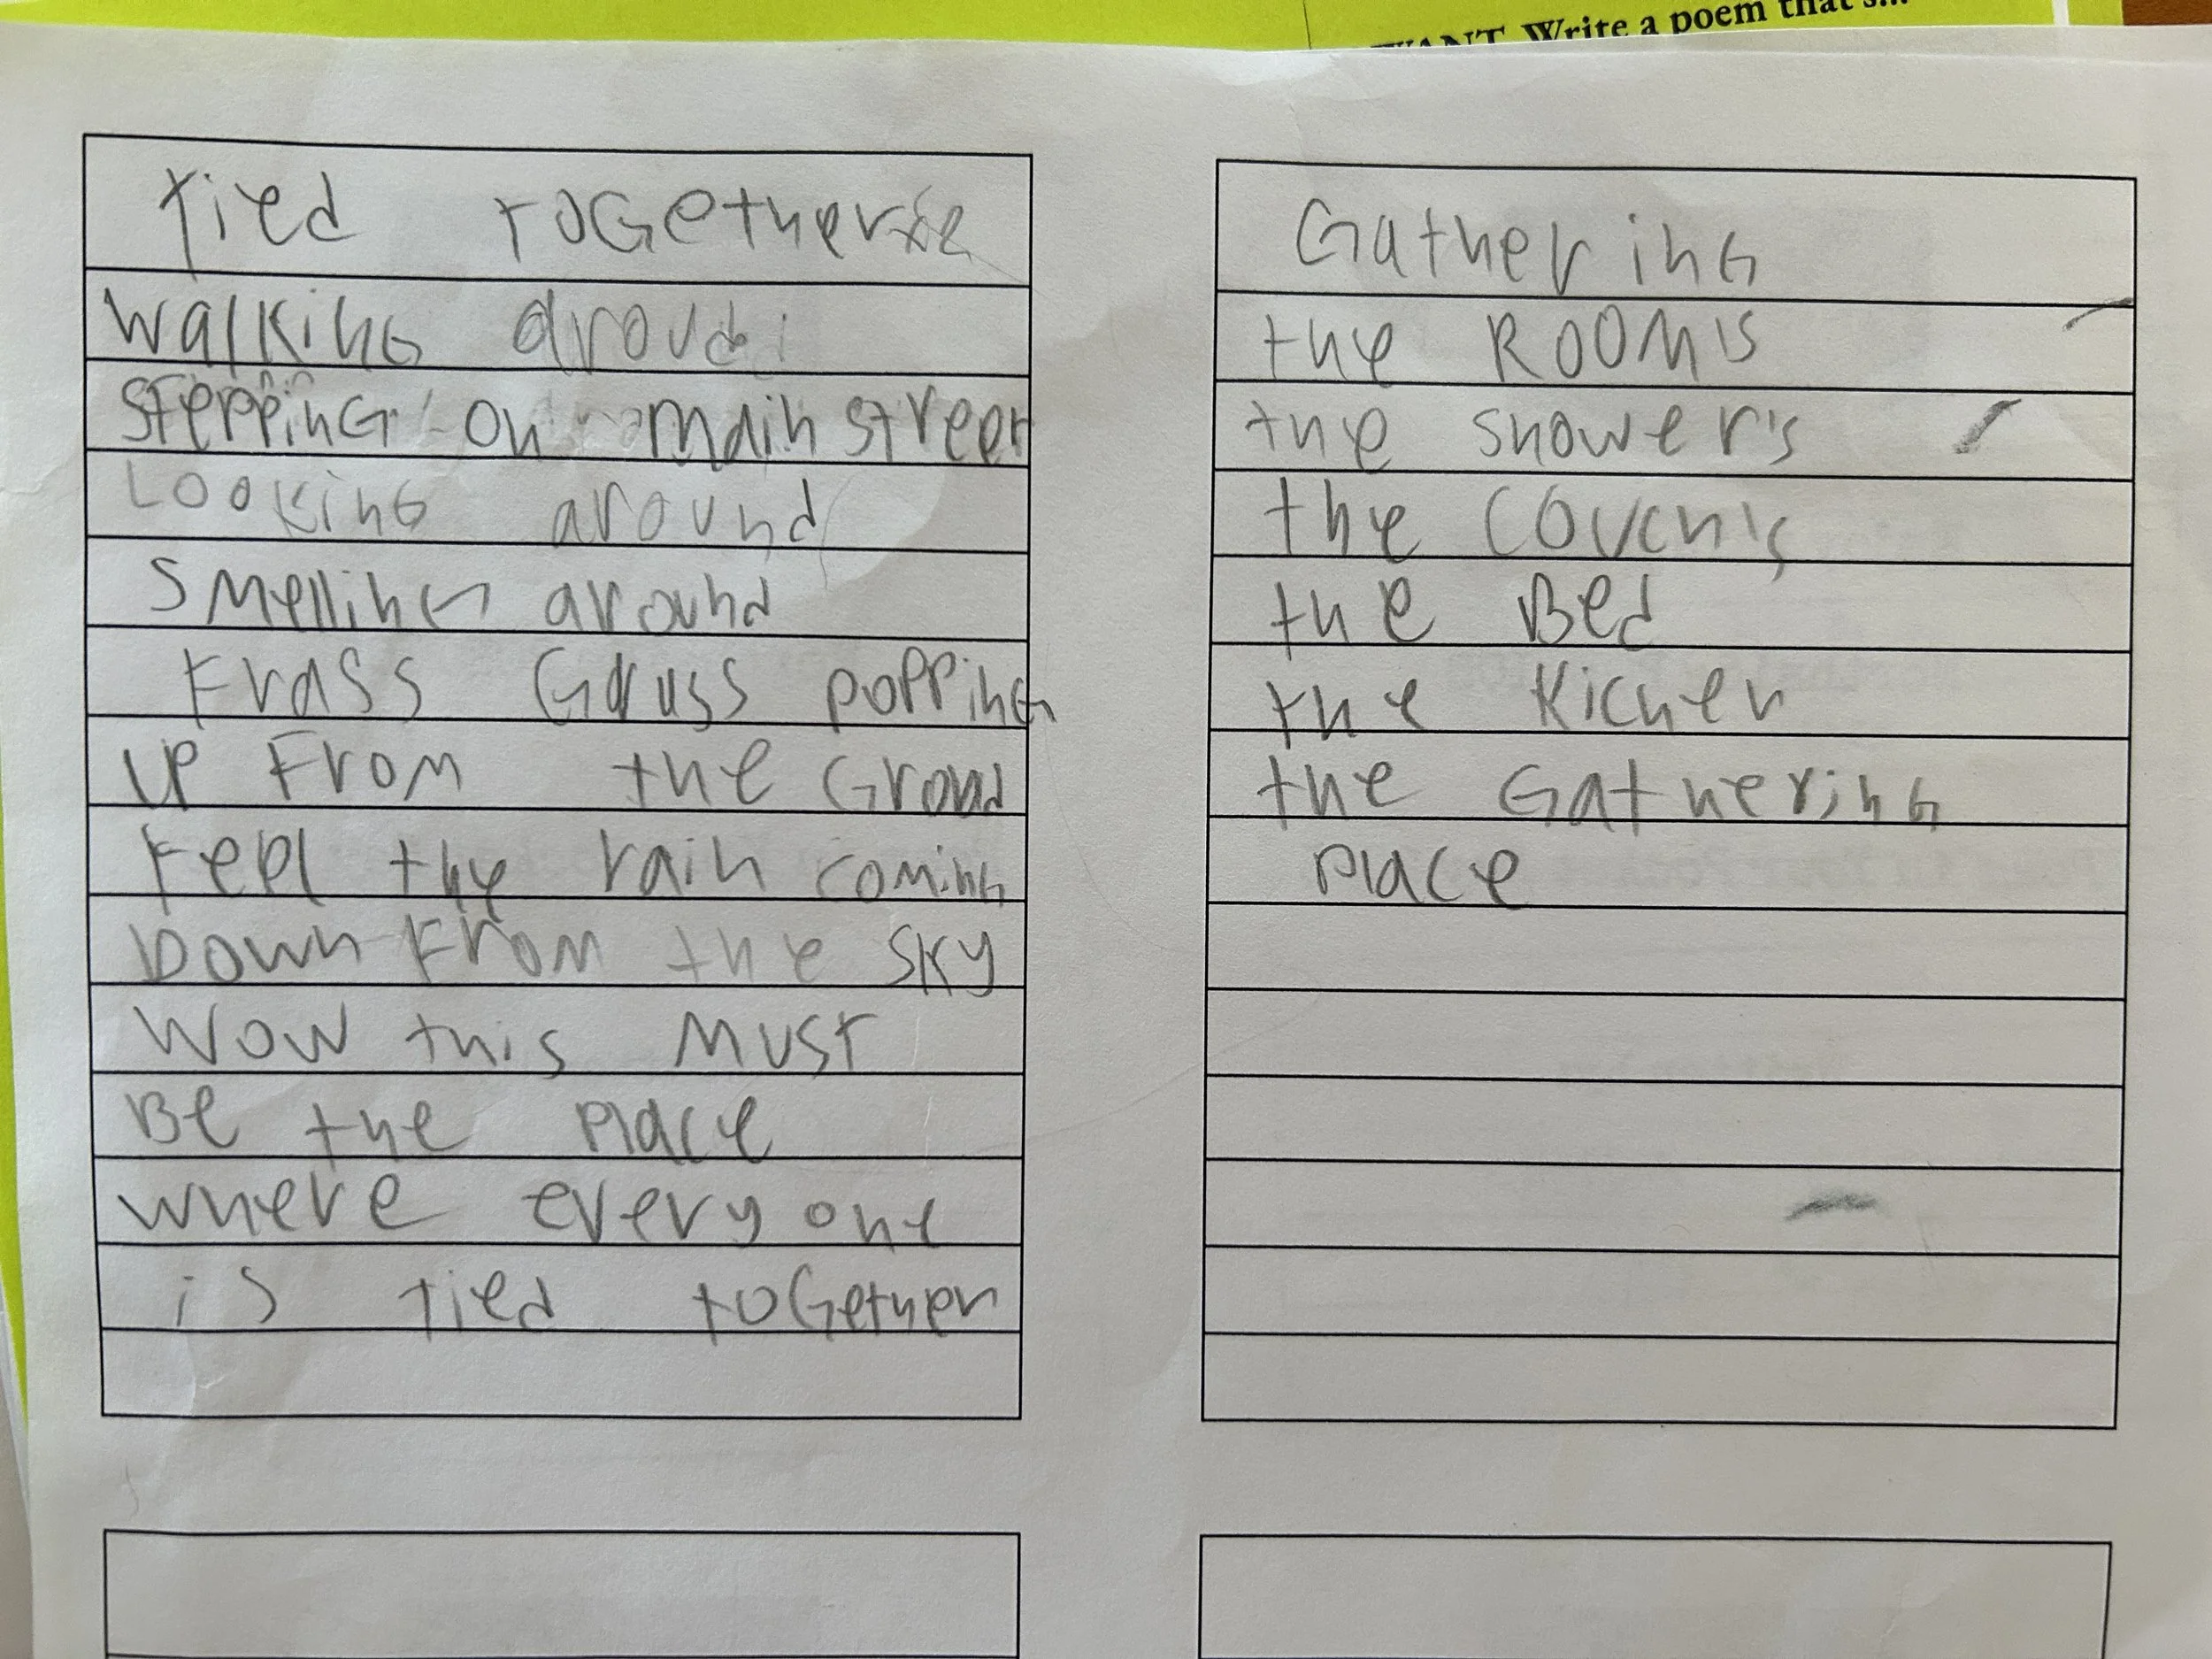 WANT. Write a poem that's...
Tied ToGether
walking aroud
stepping on main street
Looking around
smelling around
Frass Grass popping
up From the Groud
Feel the rain coming
Down From the sky
Wow this Must
Be the place
where every one
is Tied toGether
Gathering
the ROOM's
the shower's
the couch's
the Bed
the Kichen
the Gathering
place